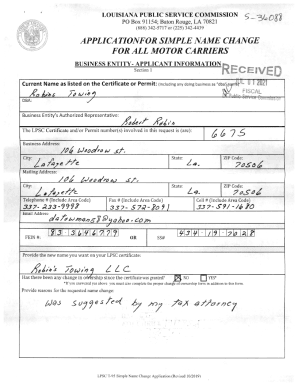 LOUISIANA PUBLIC SERVICE COMMISSION
S-34088
PO Box 91154; Baton Rouge, LA 70821
(888) 342-5717 or (225) 342-4439
APPLICATION FOR SIMPLE NAME CHANGE
FOR ALL MOTOR CARRIERS
BUSINESS ENTITY- APPLICANT INFORMATION
Section 1
RECEIVED
Current Name as listed on the Certificate or Permit:
2021
FISCAL
Robins Towing
Public Service Commission
DBA:
Business Entity's Authorized Representative:
Robert Robin
The LPSC Certificate and/or Permit number(s) involved in this request is (are):
6675
Business Address:
106 Woodrow St.
City: State: ZIP Code:
Lafayette La. 70506
Mailing Address:
106 Woodrow St.
City: State: ZIP Code:
Lafayette La. 70506
Telephone # (Include Area Code) Fax # (Include Area Code) Cell # (Include Area Code)
337-233-9998 337-572-8091 337-591-1680
Email Address:
datowman58@yahoo.com
FEIN #: 83-3646779 OR SS#
Provide the new name you want on your LPSC certificate:
Robin's Towing LLC
Has there been any change in ownership since the certificate was granted? NO YES*
Provide reasons for the requested name change:
Was suggested by my tax attorney
LPSC T-95 Simple Name Change Application